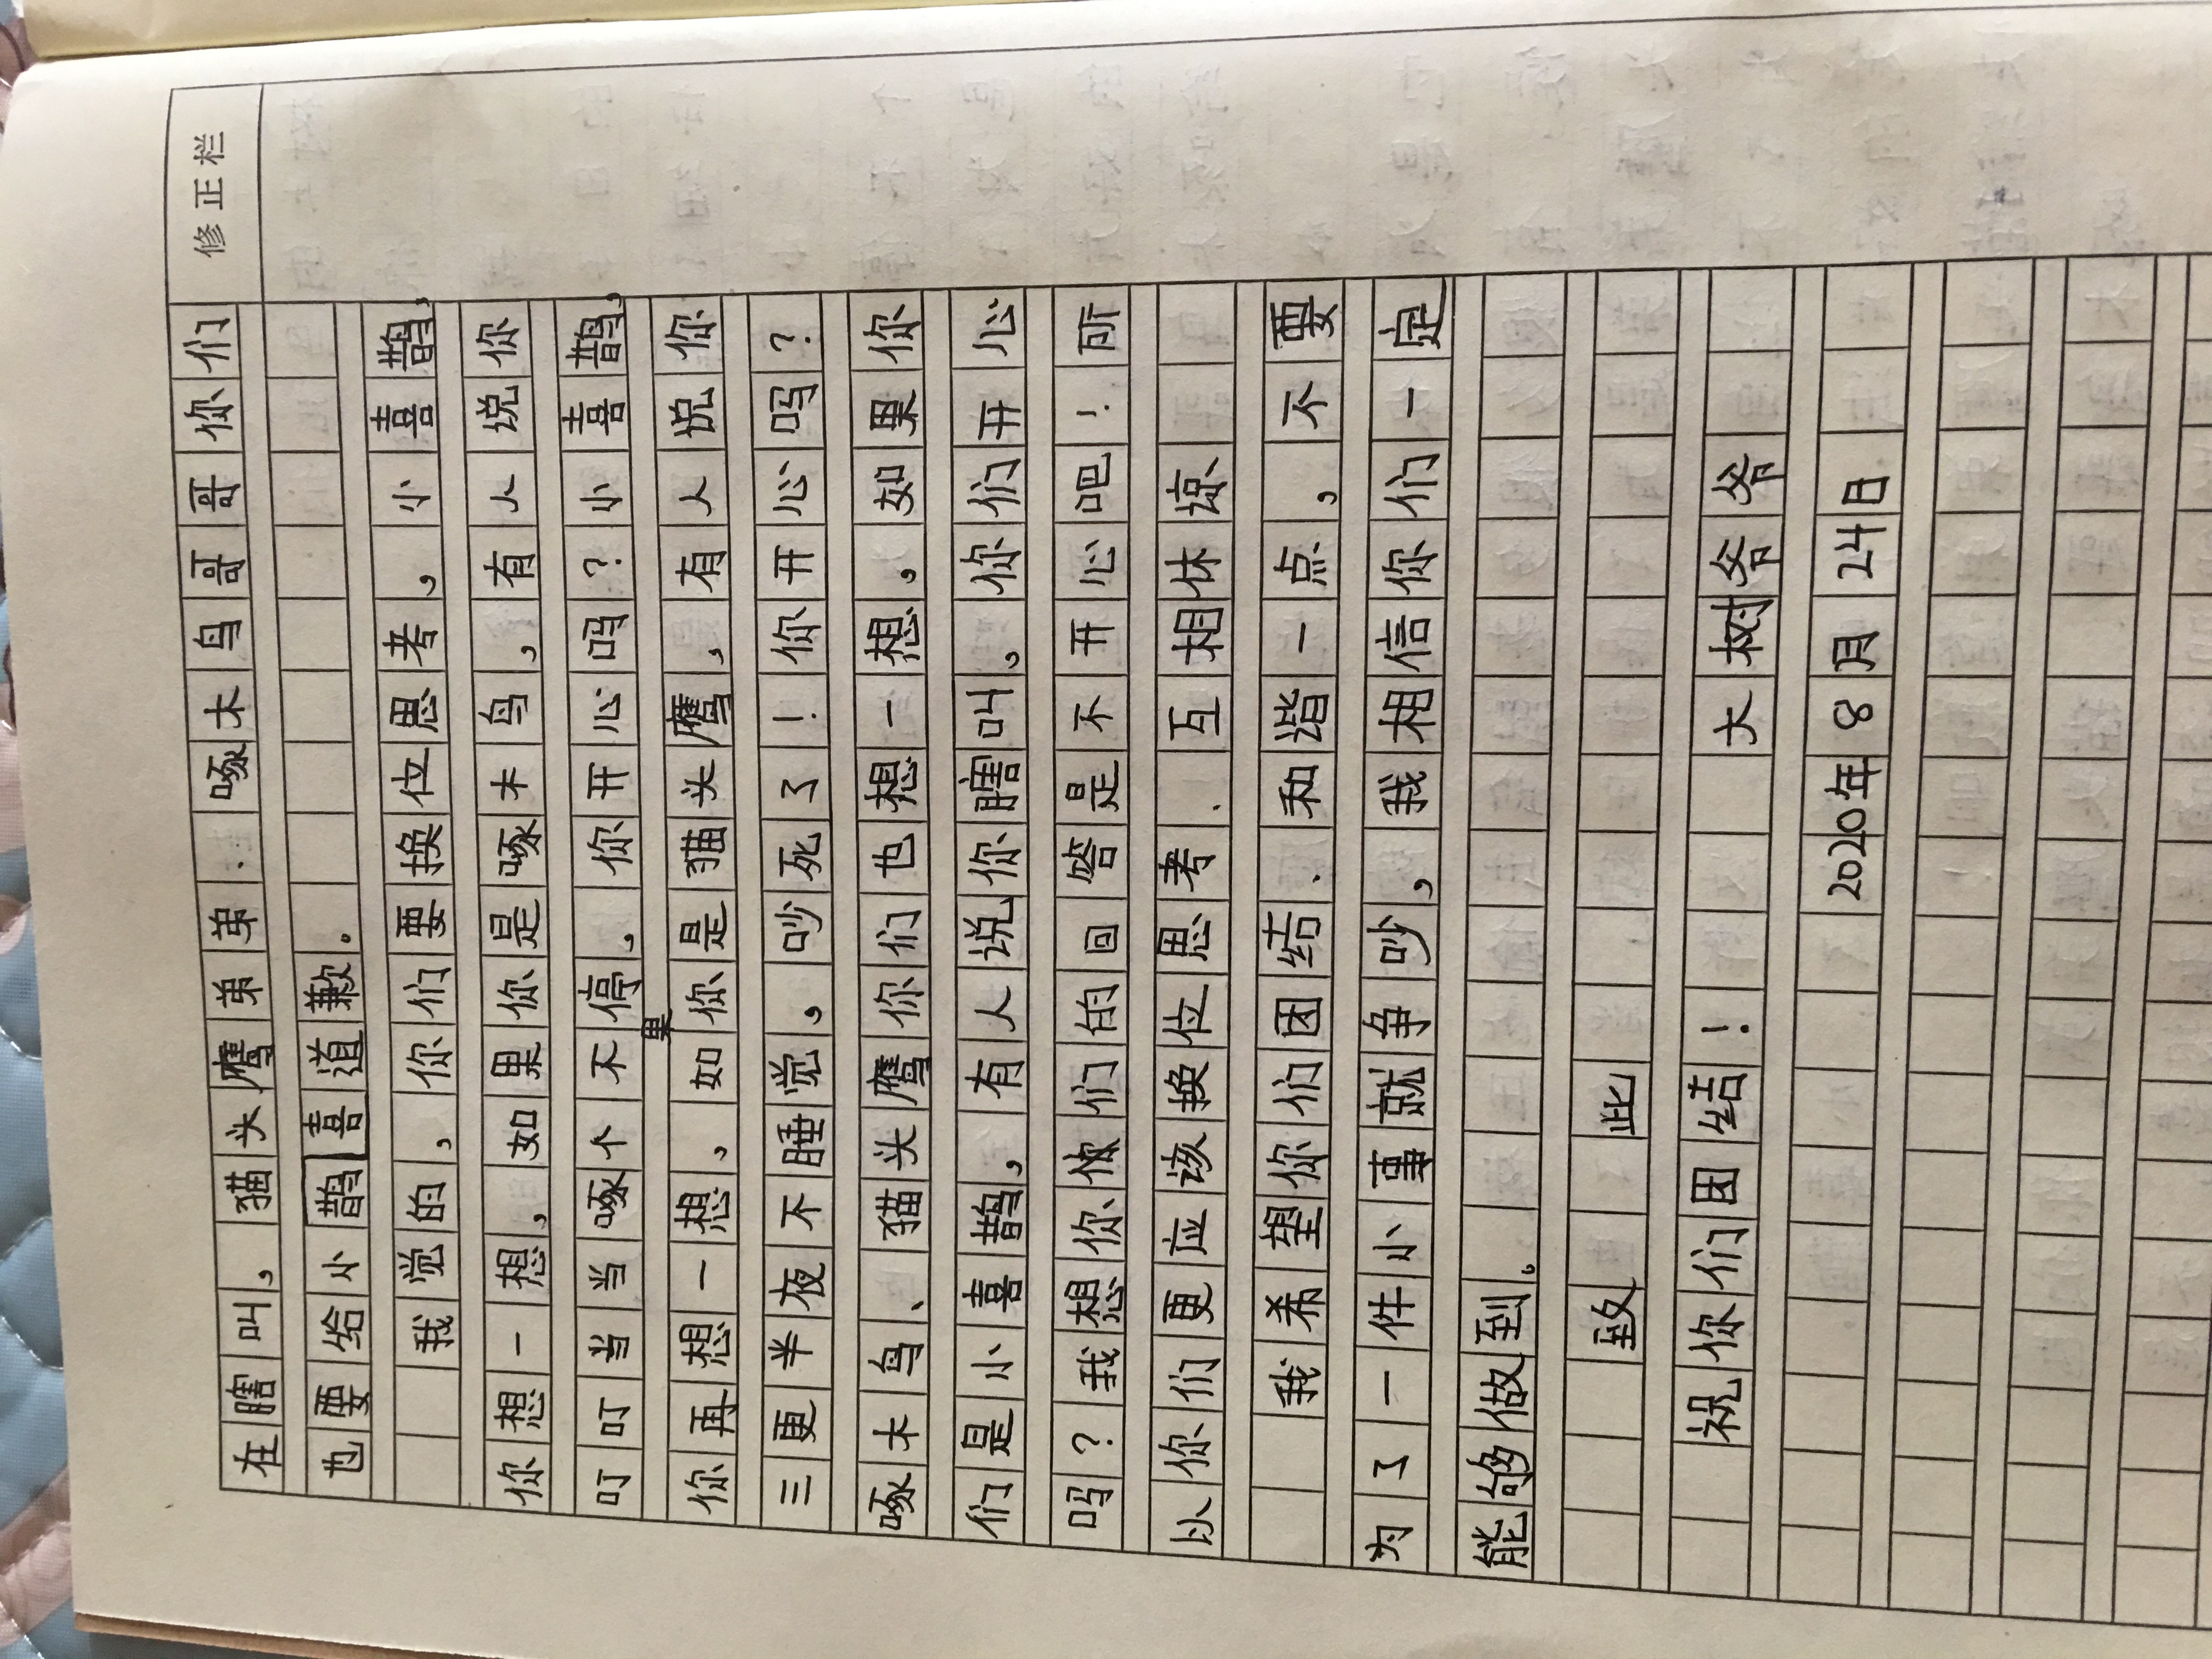 修正栏
在瞎叫，猫头鹰弟弟．啄木鸟哥哥你们
也要给小鹊喜道歉。
我觉的，你们要换位思考，小喜鹊，
你想一想，如果你是啄木鸟，有人说你
叮叮当当啄个不停，你开心吗？小喜鹊，
你再想一想，如果你是猫头鹰，有人说你
三更半夜不睡觉，吵死了！你开心吗？
啄木鸟、猫头鹰你们也想一想，如果你
们是小喜鹊，有人说你瞎叫，你们开心
吗？我想你们的回答是不开心吧！所
以你们更应该换位思考．互相休谅、
我希望你们团结．和谐一点，不要
为了一件小事就争吵，我相信你们一定
能够做到。
致此
祝你们团结！大树爷爷
2020年8月24日